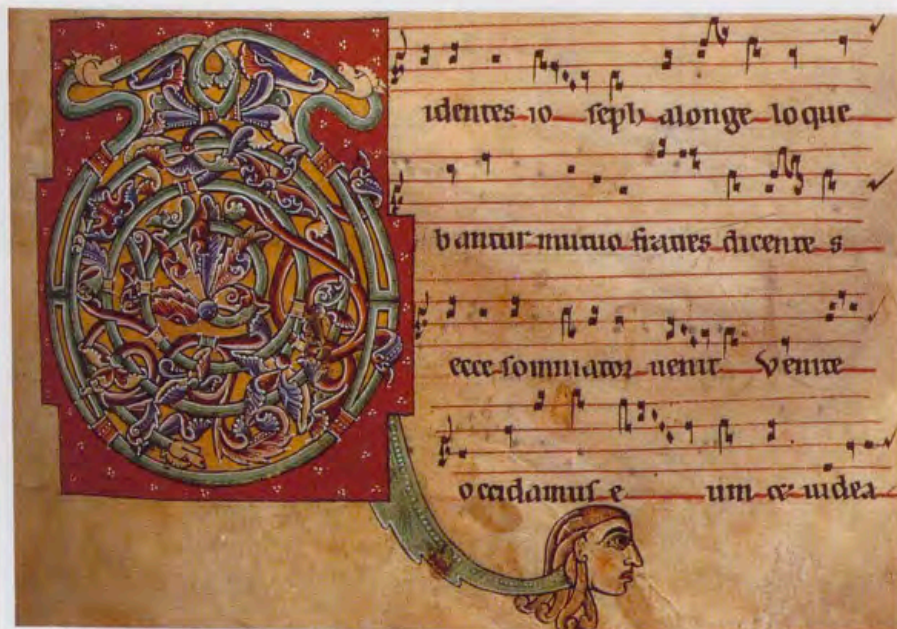 identes io seph alonge lo que
b antur mutuo fratres dicente s
ecce somniator uenit Venite
occidamus e um et uidea